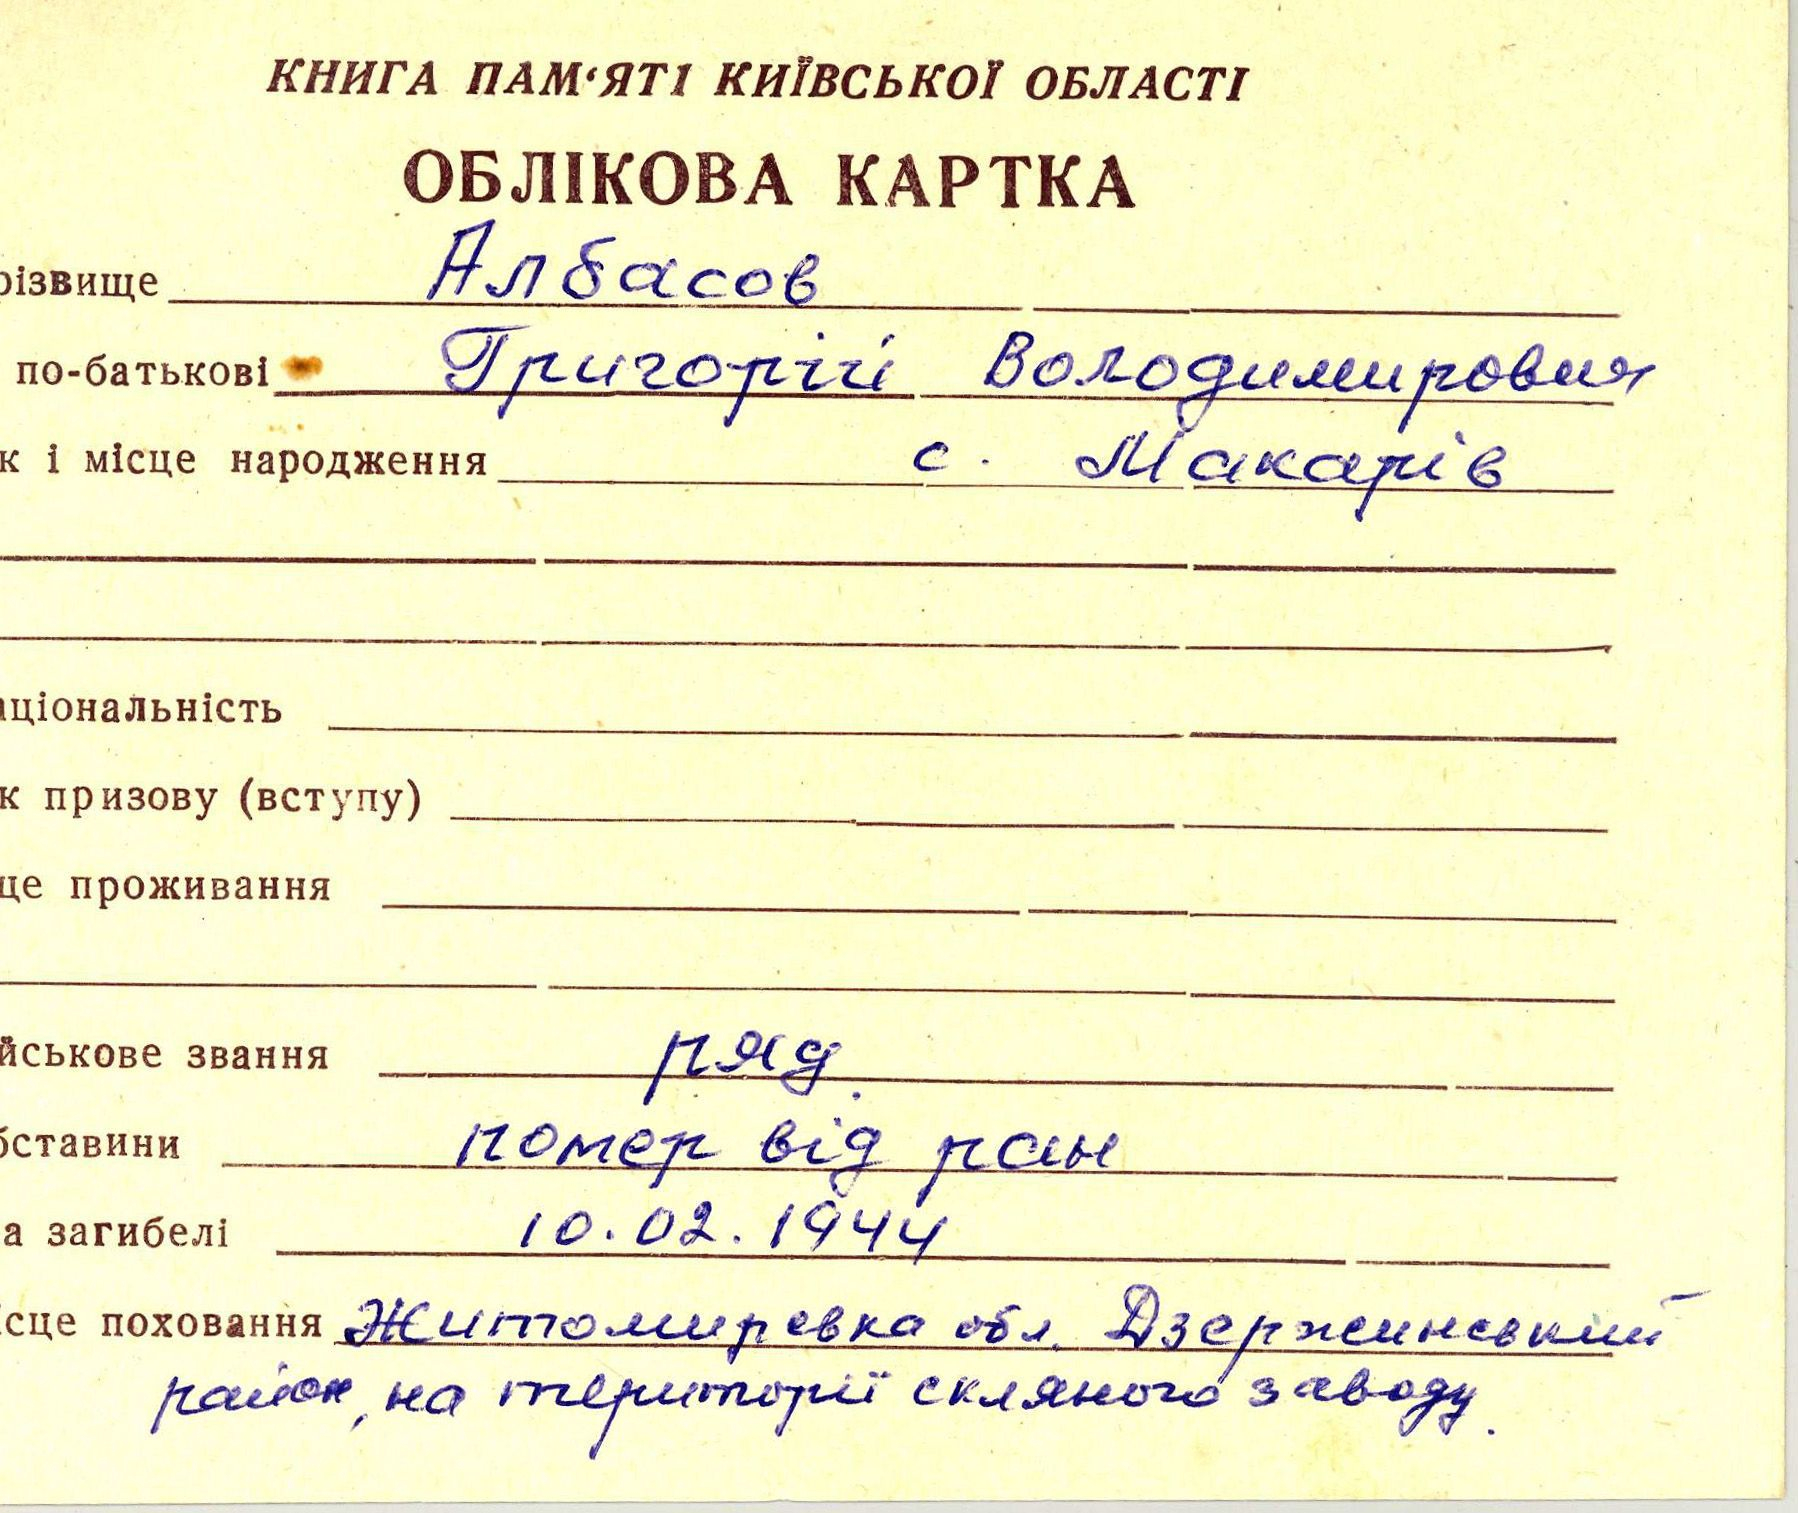 КНИГА ПАМ‘ЯТІ КИЇВСЬКОЇ ОБЛАСТІ
ОБЛІКОВА КАРТКА
різвище Албасов
по-батькові Григорій Володимирович
к і місце народження с. Макарів
аціональність
к призову (вступу)
це проживання
йськове звання ряд.
бставини помер від ран
а загибелі 10.02.1944
ісце поховання Житомирська обл. Дзержинський
район, на території скляного заводу.